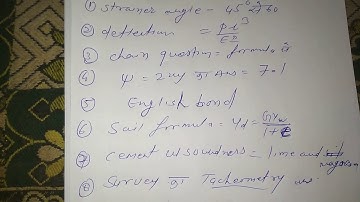 ① strainer angle = 45° 2760
② deflection = Pl³/EI
③ chain question = formula is
④ Ψ = 2xy का Ans = 7.1
⑤ English bond
⑥ Soil formula = γd = Gγw/1+e
⑦ cement unsoundness = lime and magnesia
⑧ Survey का Tacheometry